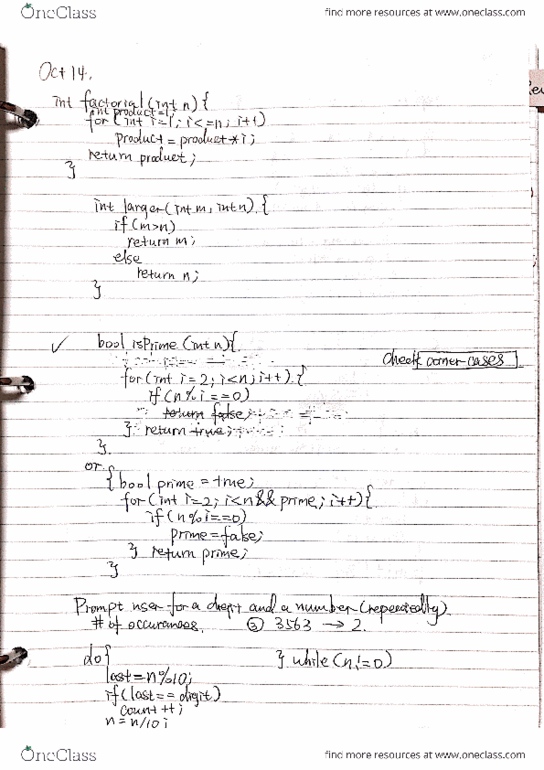 OneClass
find more resources at www.oneclass.com
Oct 14.
int factorial (int n) {
int product=1;
for (int i=1; i<=n; i++)
product = product * i;
return product;
}
int larger (int m, int n) {
if (m>n)
return m;
else
return n;
}
✓ bool isPrime (int n) {
check corner cases
for (int i=2; i<n; i++) {
if (n%i==0)
return false;
} return true;
}
or
{ bool prime = true;
for (int i=2; i<n && prime; i++) {
if (n%i==0)
prime=false;
} return prime;
}
Prompt user for a digit and a number (repeatedly).
# of occurances. ③ 3563 → 2.
do { } while (n!=0)
last=n%10;
if (last== digit)
count ++;
n = n/10;
OneClass
find more resources at www.oneclass.com